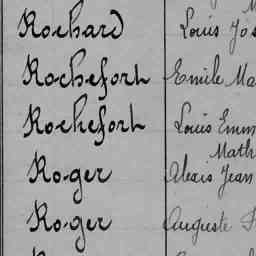 Rochard Louis Jos
Rochefort Emile Ma
Rochefort Louis Emm
Math
Roger Alexis Jean
Roger Auguste F